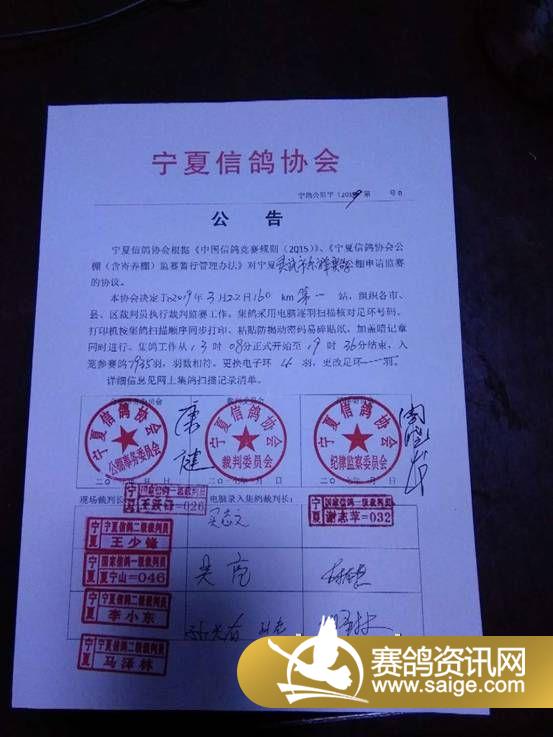 宁夏信鸽协会
宁鸽公監字（2019第 号0
公 告
宁夏信鸽协会根据《中国信鸽竞赛规则（2015）》、《宁夏信鸽协会公
棚（含寄养棚）监赛暂行管理办法》对宁夏 公棚申请监赛
的协议。
本协会决定于2019年3月22日160 km 第一 站，组织各市、
县、区裁判员执行裁判监赛工作。集鸽采用电脑逐羽扫描核对足环号码、
打印机按集鸽扫描顺序同步打印、粘贴防揭动密码易碎贴纸、加盖暗记章
同时进行。集鸽工作从13时08分正式开始至19时36分结束，入
笼参赛鸽7935羽，羽数相符。更换电子环 羽，更改足环一羽。
详细信息见网上集鸽扫描记录清单。
宁夏信鸽协会
公棚事务委员会
康健
宁夏信鸽协会
裁判委员会
宁夏信鸽协会
纪律监察委员会
现场裁判长：
国家信鸽一级裁判员
=026
电脑录入集鸽裁判长：
宁夏
国家信鸽一级裁判员
谢志苹=032
宁夏
宁夏信鸽二级裁判员
王少锋
宁夏
国家信鸽一级裁判员
夏宁山=046
吴亮
宁夏
宁夏信鸽二级裁判员
李小东
宁夏
宁夏信鸽二级裁判员
马泽林
赛鸽资讯网
www.saige.com